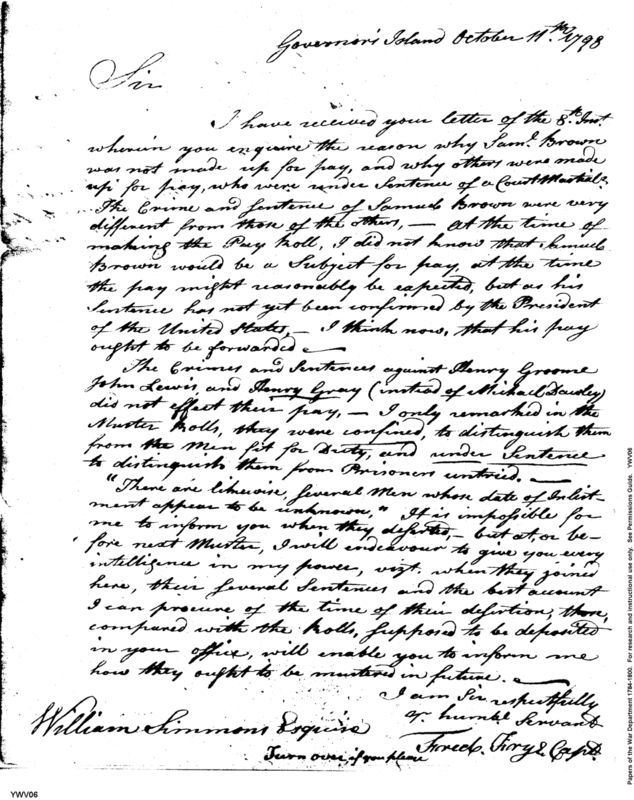 Governor's Island October 11th. 1798
Sir
I have received your letter of the 8th. Inst.
wherein you enquire the reason why Saml. Brown
was not made up for pay, and why others were made
up for pay, who were under Sentence of a Court Martial.
The Crime and Sentence of Samuel Brown were very
different from those of the others, — At the time of
making the Pay Roll, I did not know that Samuel
Brown would be a Subject for pay, at the time
the pay might reasonably be expected, but as his
Sentence has not yet been confirmed by the President
of the United States, — I think now, that his pay
ought to be forwarded —
The Crimes and Sentences against Henry Groome
John Lewis and Henry Gray (instead of Michail Dawley)
did not effect their pay, — I only remarked in the
Muster Rolls, they were confined, to distinguish them
from the Men fit for Duty, and under Sentence
to distinguish them from Prisoners untried. —
"There are likewise, Several Men whose date of Inlist-
ment appear to be unknown," It is impossible for
me to inform you when they deserted, — but at, or be-
fore next Muster, I will endeavour to give you every
intelligence in my power, vizt. when they joined
here, their Several Sentences and the best account
I can procure of the time of their desertion, these,
compared with the Rolls, supposed to be deposited
in your office, will enable you to inform me
how they ought to be mustered in future. —
I am Sir respectfully
Yr. humbl Servant
William Simmons Esquire
Fredk. Frye Capt.
Turn over if you please
YWV06
Papers of the War Department 1784-1800. For research and instructional use only. See Permissions Guide. YWV06